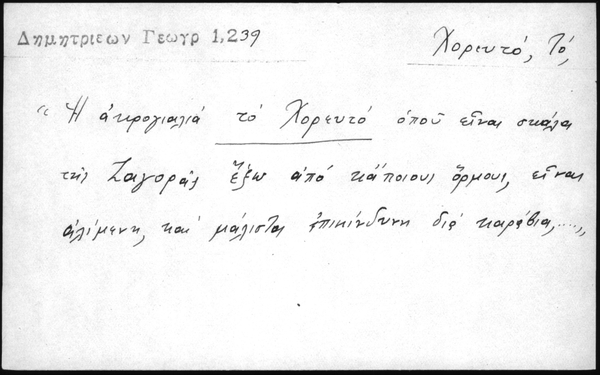 Δημητριεων Γεωγρ 1,239
Χορευτό, Τό,
"Ἡ ἀκρογιαλιά τό Χορευτό ὁποῦ εἶναι σκάλα
τῆς Ζαγορᾶς ἔξω ἀπό κάποιους ὅρμους, εἶναι
ἀλίμενη, καί μάλιστα ἐπικίνδυνη διά καράβια,....,,